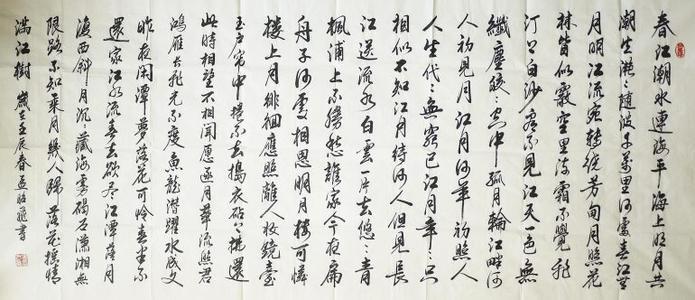 春江潮水連海平海上明月共
潮生灩々隨波千万里何處春江無
月明江流宛轉繞芳甸月照花
林皆似霰空里流霜不覺飛
汀上白沙看不見江天一色無
纖塵皎々空中孤月輪江畔何
人初見月江月何年初照人
人生代々無窮已江月年々只
相似不知江月待何人但見長
江送流水白雲一片去悠々青
楓浦上不勝愁誰家今夜扁
舟子何處相思明月樓可憐
樓上月徘徊應照離人妝鏡臺
玉户帘中捲不去搗衣砧上拂還
此時相望不相聞愿逐月華流照君
鴻雁長飛光不度魚龍潛躍水成文
昨夜闲潭夢落花可怜春半不
還家江水流春去欲盡江潭落月
復西斜月沉々藏海霧碣石瀟湘無
限路不知乘月幾人歸落花摇情
滿江樹 歲在壬辰春孟昭書